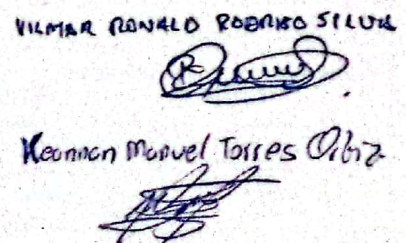 VILMAR RONALD RODRIGO SILVA
Keannan Manuel Torres Ortiz